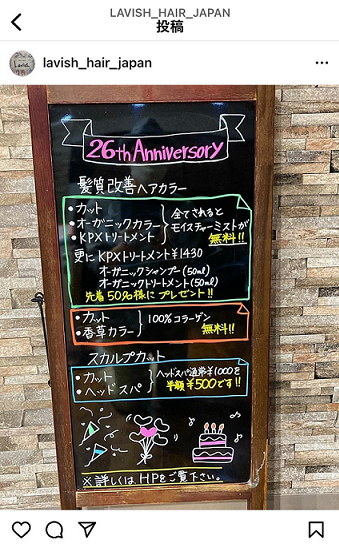 LAVISH_HAIR_JAPAN
投稿
lavish_hair_japan
26th Anniversory
髪質改善ヘアカラー
•カット
•オーガニックカラー
•KPXトリートメント
全てされると
モイスチャーミストが
無料!!
更にKPXトリートメント¥1430
オーガニックシャンプー(50ml)
オーガニックトリートメント(50ml)
先着50名様にプレゼント!!
•カット
•香草カラー
100%コラーゲン
無料!!
スカルプカット
•カット
•ヘッドスパ
ヘッドスパ通常¥1000を
半額¥500です!!
※詳しくはHPをご覧下さい。